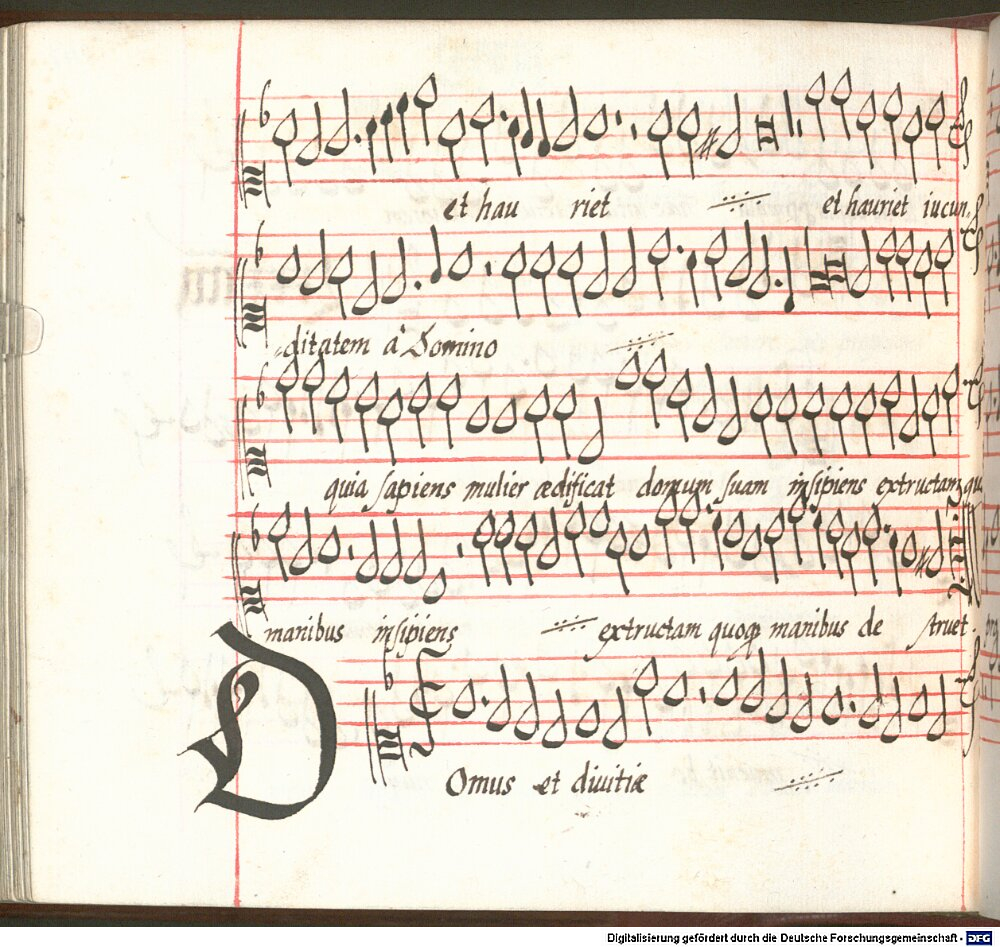 et hau riet et hauriet iucun-
-ditatem a Domino
quia sapiens mulier ædificat domum suam insipiens extructam qu
manibus insipiens extructam quoq manibus de struet
DOmus et diuitiæ
Digitalisierung gefördert durch die Deutsche Forschungsgemeinschaft - DFG